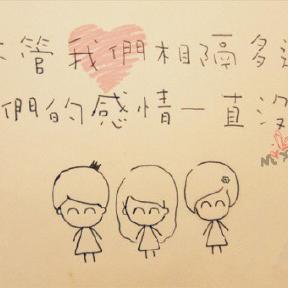 管我們相隔多
們的感情一直沒